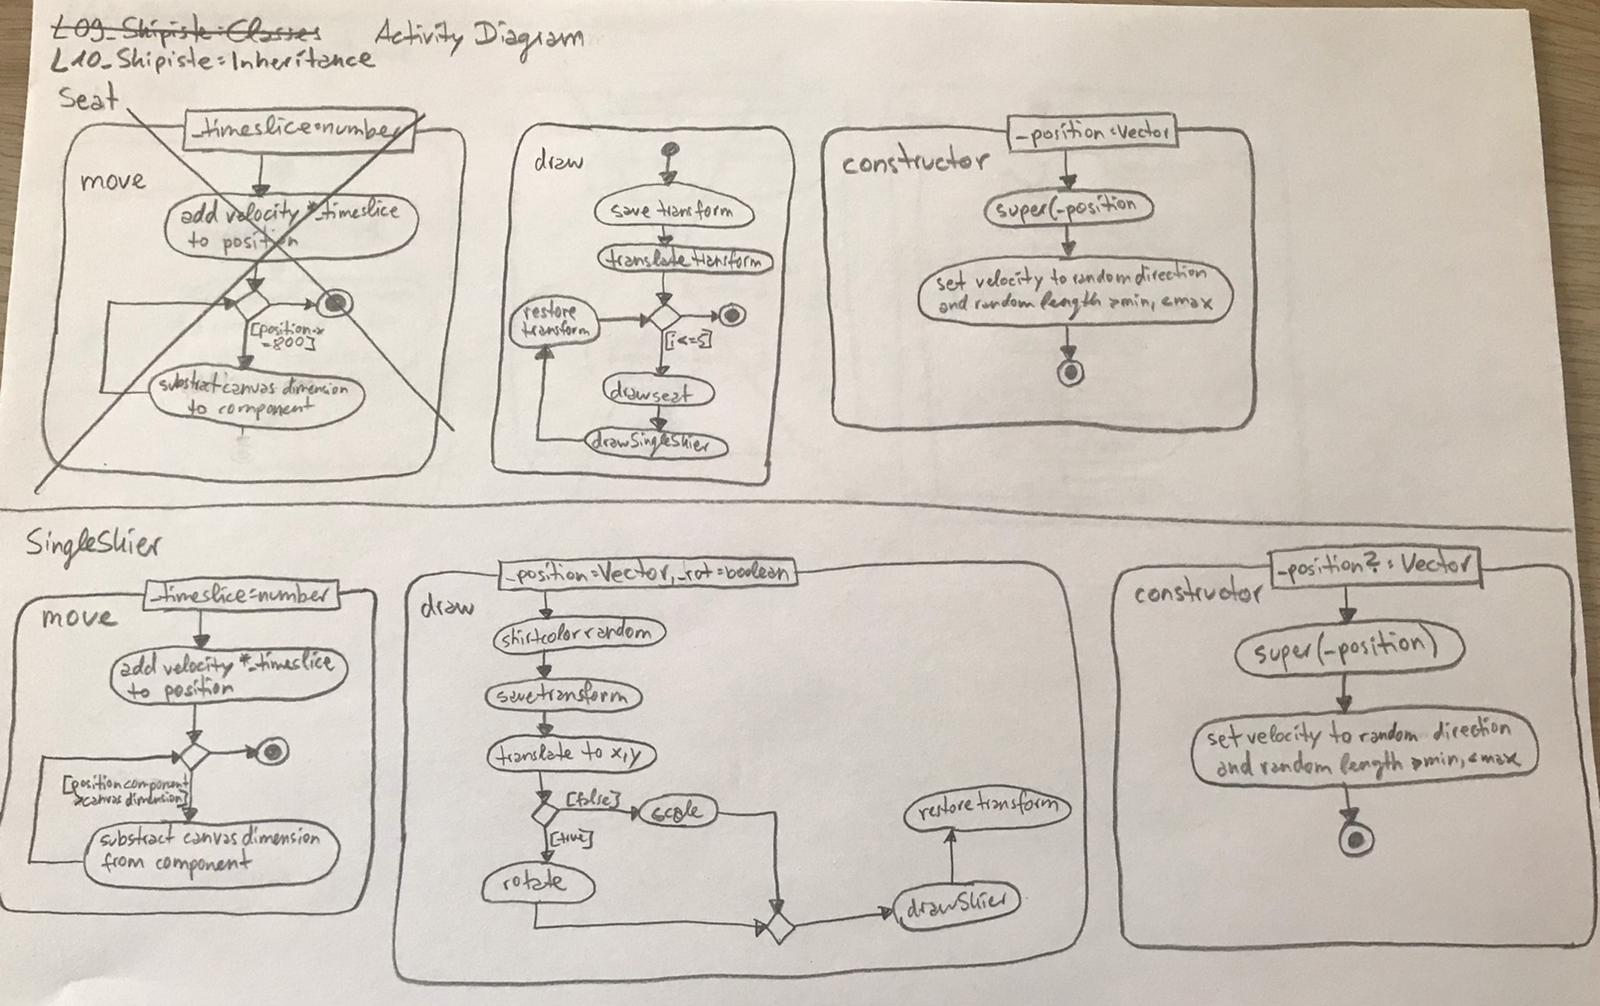 L09_Skipiste:Classes Activity Diagram
L10_Skipiste:Inheritance
Seat
_timeslice:number
move
add velocity *_timeslice
to position
[position.x
-800]
substract canvas dimension
to component
draw
save transform
translate transform
restore
transform
[i<=5]
draw seat
drawSingleSkier
_position:Vector
constructor
super(_position
set velocity to random direction
and random length >min, <max
SingleSkier
_timeslice:number
move
add velocity *_timeslice
to position
[position component
>canvas dimension]
substract canvas dimension
from component
_position:Vector, _rot:boolean
draw
shirtcolor random
save transform
translate to x,y
[false]
scale
[true]
rotate
restore transform
drawSkier
_position?: Vector
constructor
super(_position)
set velocity to random direction
and random length >min, <max